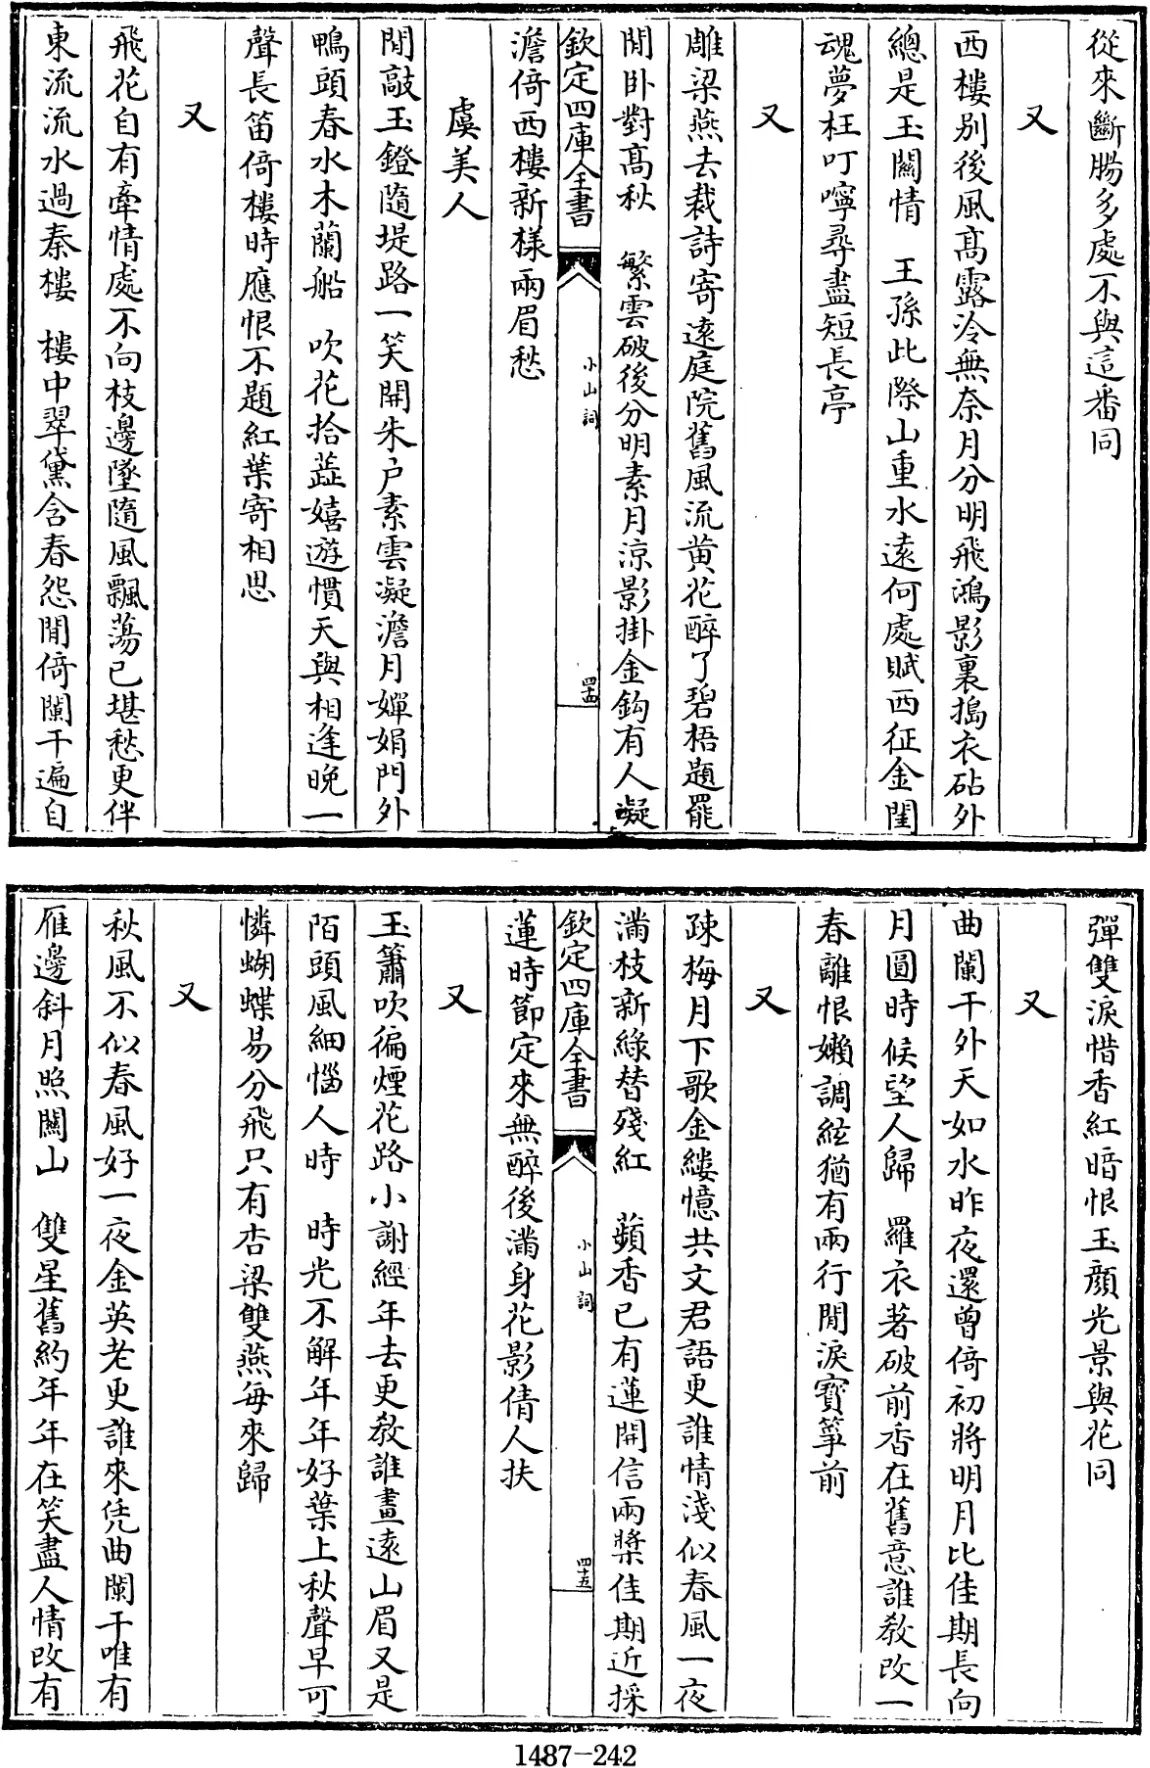 從來斷腸多處不與這番同
又
西樓别後風髙露冷無奈月分明飛鴻影裏搗衣砧外
總是玉關情　王孫此際山重水逺何處賦西征金閨
魂夢枉叮嚀尋盡短長亭
又
雕梁燕去裁詩寄逺庭院舊風流黄花醉了碧梧題罷
閒卧對髙秋　繁雲破後分明素月涼影掛金鈎有人凝
欽定四庫全書
小山詞
四十四
澹倚西樓新様兩眉愁
虞美人
閒敲玉鐙隨堤路一笑開朱户素雲凝澹月嬋娟門外
鴨頭春水木蘭船　吹花拾蕋嬉遊慣天與相逢晩一
聲長笛倚樓時應恨不題紅葉寄相思
又
飛花自有牽情處不向枝邊墜隨風飄蕩已堪愁更伴
東流流水過秦樓　樓中翠黛含春怨閒倚闌干遍自
彈雙淚惜香紅暗恨玉顔光景與花同
又
曲闌干外天如水昨夜還曾倚初將明月比佳期長向
月圓時候望人歸　羅衣著破前香在舊意誰教改一
春離恨嬾調絃猶有兩行閒淚寳箏前
又
疎梅月下歌金縷憶共文君語更誰情淺似春風一夜
滿枝新綠替殘紅　蘋香已有蓮開信兩槳佳期近採
欽定四庫全書
小山詞
四十五
蓮時節定來無醉後滿身花影倩人扶
又
玉簫吹徧煙花路小謝經年去更教誰畫逺山眉又是
陌頭風細惱人時　時光不解年年好葉上秋聲早可
憐蝴蝶易分飛只有杏梁雙燕每來歸
又
秋風不似春風好一夜金英老更誰來凭曲闌干唯有
雁邊斜月照關山　雙星舊約年年在笑盡人情改有
1487-242